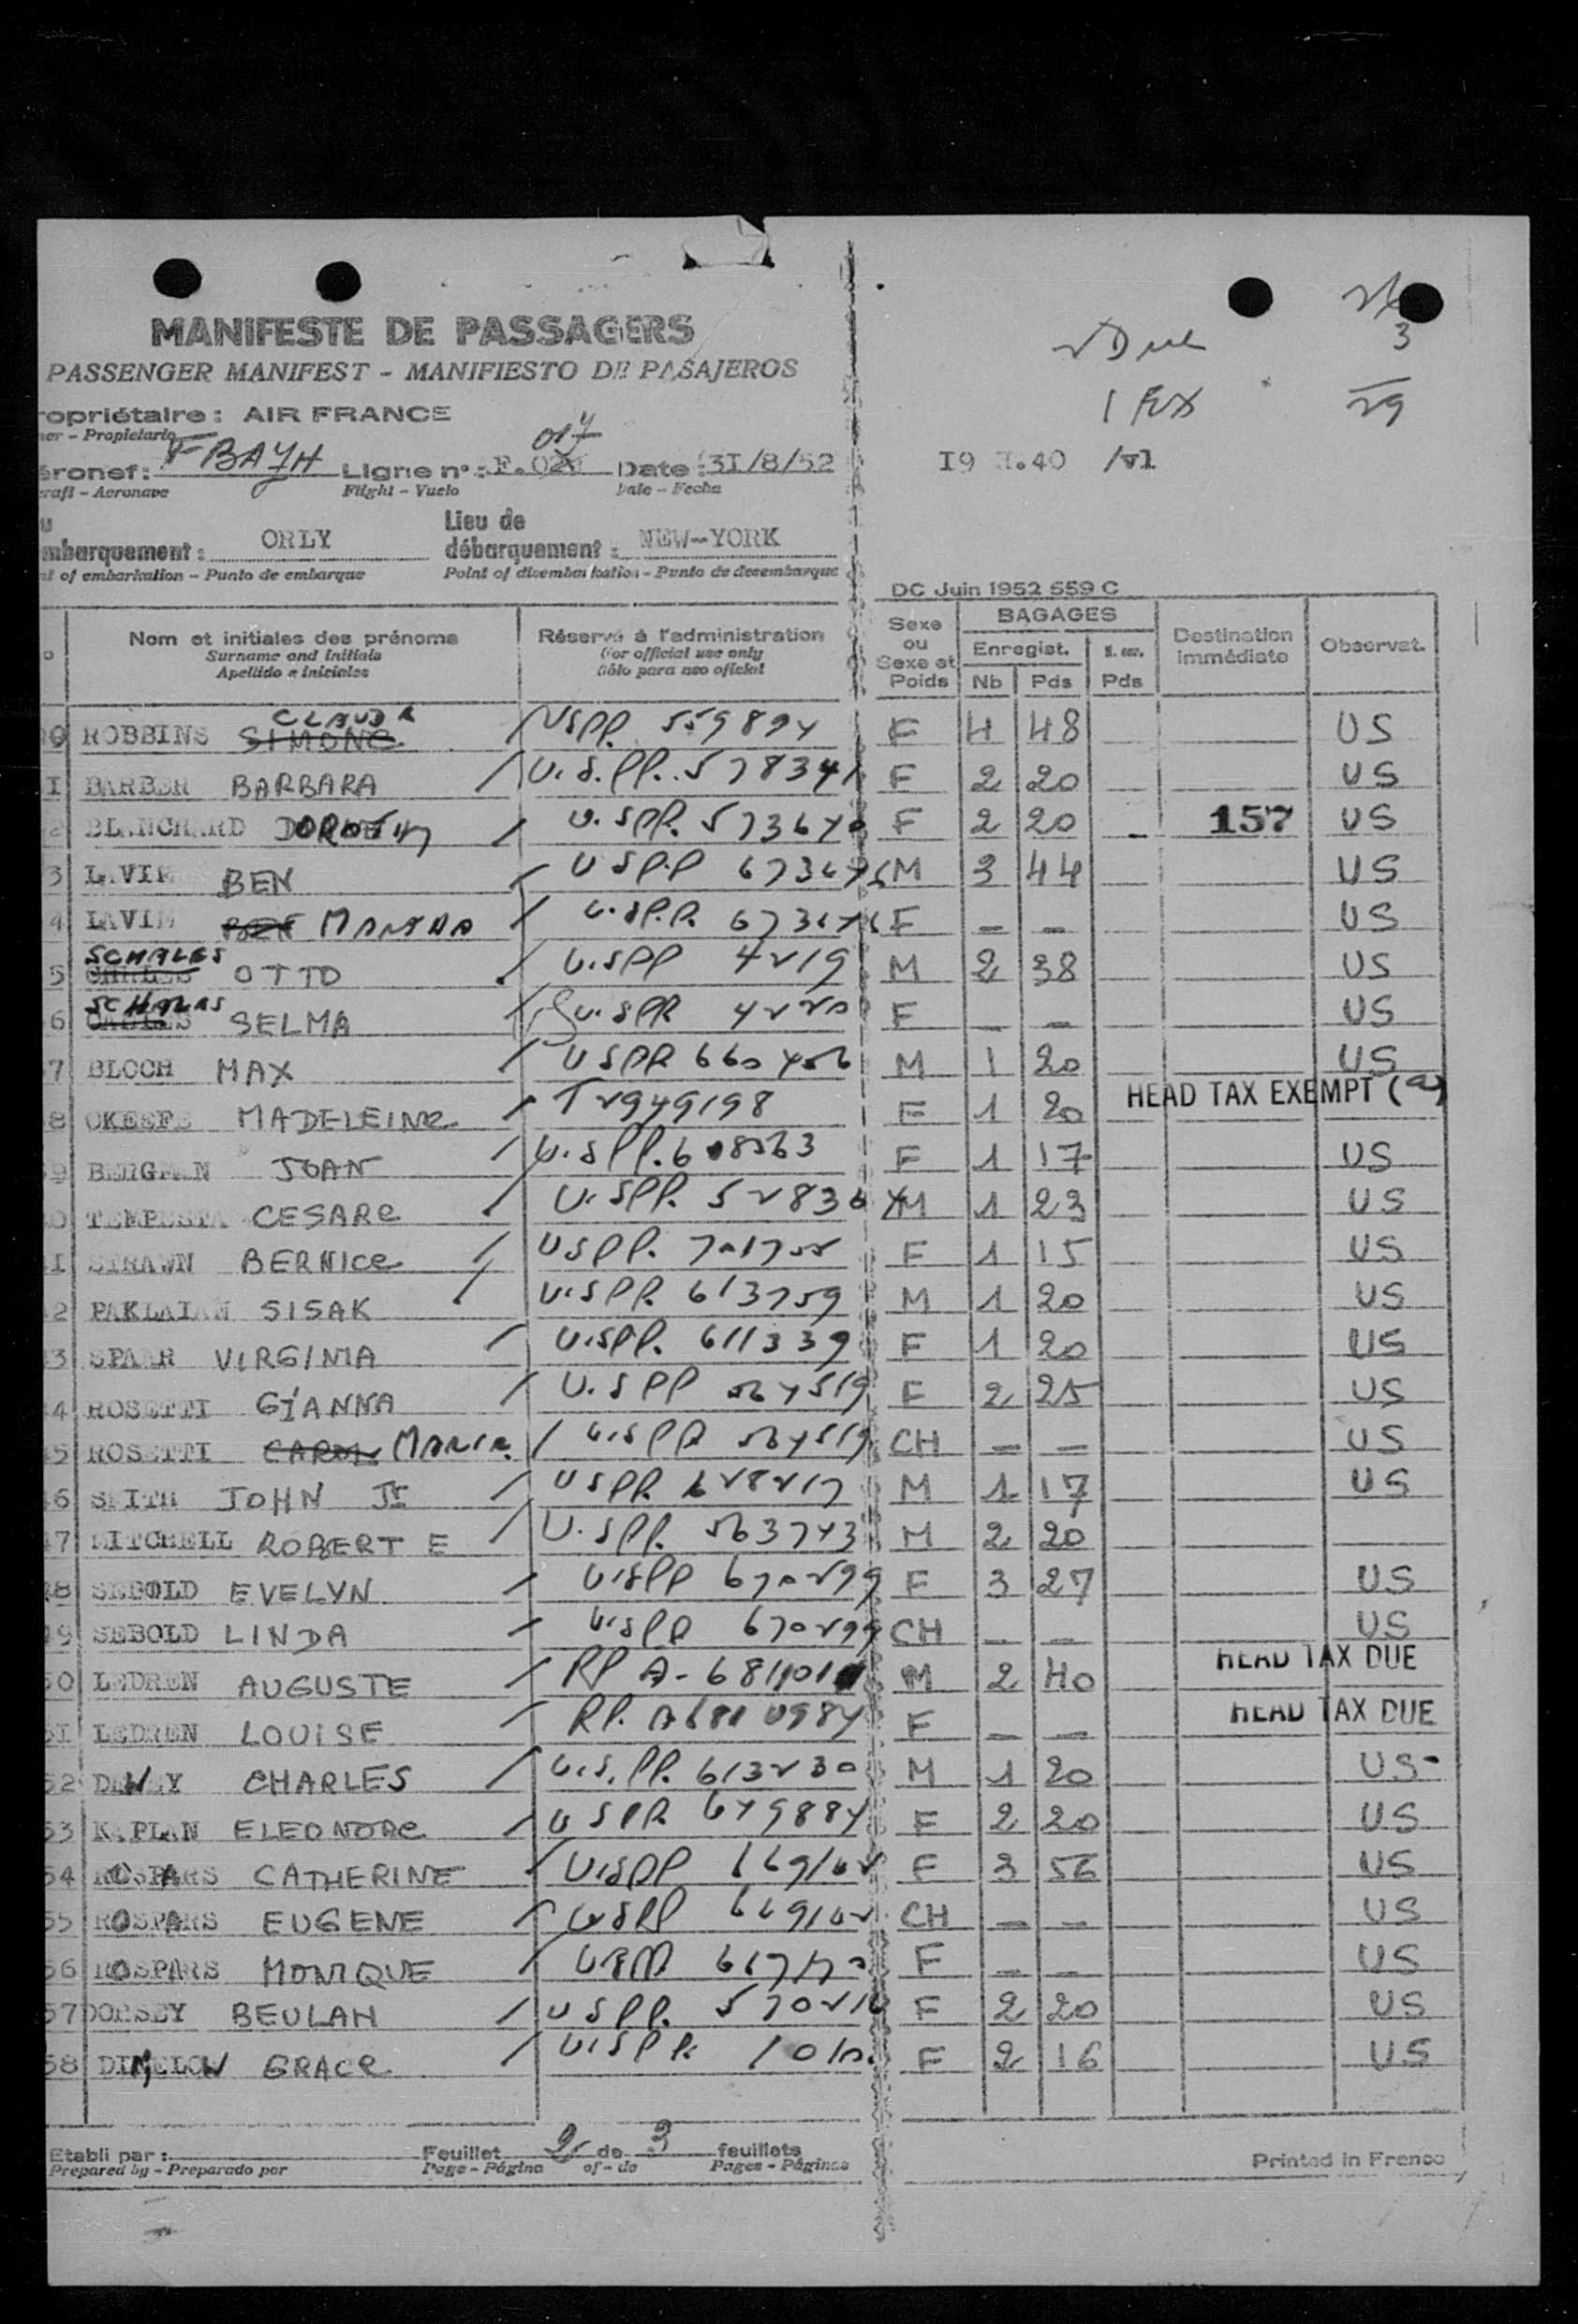 MANIFESTE DE PASSAGERS
PASSENGER MANIFEST - MANIFIESTO DE PASAJEROS
ropriétaire : AIR FRANCE
ner - Propietario
éronef : FBAZH Ligne n° : F. 017 Date : 31/8/52
raft - Aeronave Flight - Vuelo Date - Fecha
mbarquement : ORLY Lieu de débarquement : NEW-YORK
nt of embarkation - Punto de embarque Point of disembarkation - Punto de desembarque
3
29
I9 H.40
DC Juin 1952 559 C
Nom et initiales des prénoms
Surname and initials
Apellido e iniciales
Réservé à l'administration
(for official use only
Sólo para uso oficial
Sexe ou Sexe et Poids
BAGAGES
Enregist.
Nb Pds Pds
Destination immédiate
Observat.
ROBBINS SIMONE CLAUDE USPP. 559894 F 4 48 US
I BARBER BARBARA U.S.PP. 578341 F 2 20 US
2 BLANCHARD DOROTHY U.SPP. F 2 20 157 US
3 LAVIE BEN USPP M 3 44 US
4 LAVIE BEN MARTHA U.SPP. F — — US
5 SCHALES OTTO U.SPP 4219 M 2 38 US
6 SCHALES SELMA U.SPP. 4220 F — — US
7 BLOCH MAX USPP 660456 M 1 20 US
8 OKEEFE MADELEINE T2949198 F 1 20 HEAD TAX EXEMPT (a)
9 BERGMAN JOAN U.SPP. 608563 F 1 17 US
0 TEMPESTA CESARE U.SPP. M 1 23 US
I STRAWN BERNICE USPP. F 1 15 US
2 PAKLAIAN SISAK U.SPP. 613759 M 1 20 US
3 SPAAR VIRGINIA U.SPP. 611339 F 1 20 US
4 ROSETTI GIANNA U.SPP 564519 F 2 25 US
45 ROSETTI MARIA U.SPP 564519 CH — — US
46 SMITH JOHN Jr USPP. 628217 M 1 17 US
47 MITCHELL ROBERT E U.SPP. 563743 M 2 20
48 SEBOLD EVELYN U.SPP 670299 F 3 27 US
49 SEBOLD LINDA U.SPP 670299 CH — — US
50 LEDREN AUGUSTE RP A- M 2 40 HEAD TAX DUE
51 LEDREN LOUISE RP. F — — HEAD TAX DUE
52 DEWEY CHARLES U.S.PP. 613230 M 1 20 US
53 KAPLAN ELEONORE USPP. 649884 F 2 20 US
54 ROSPARS CATHERINE U.SPP F 3 56 US
55 ROSPARS EUGENE USPP CH — — US
56 ROSPARS MONIQUE F — — US
57 DORSEY BEULAH USPP. F 2 20 US
58 DINGLOW GRACE U.SPP. F 2 16 US
Etabli par :
Prepared by - Preparado por
Feuillet 2 de 3 feuillets
Page - Página of - de Pages - Páginas
Printed in France